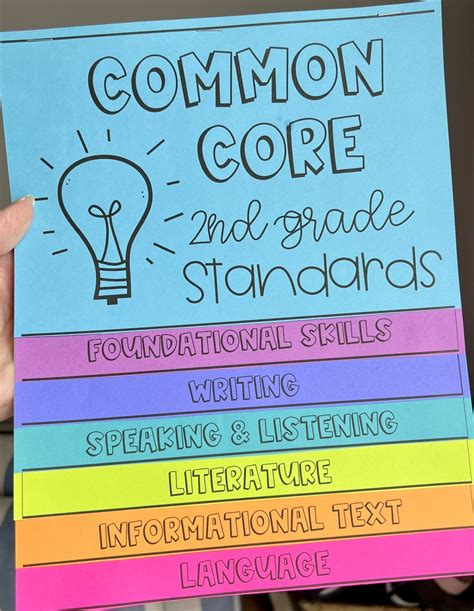 COMMON
CORE
2nd grade
Standards
FOUNDATIONAL SKILLS
WRITING
SPEAKING & LISTENING
LITERATURE
INFORMATIONAL TEXT
LANGUAGE